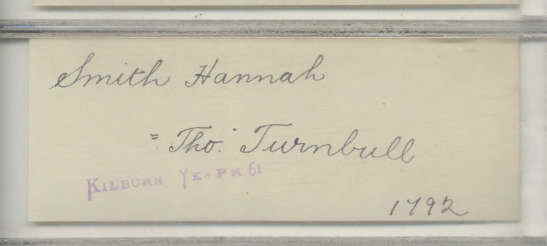 Smith Hannah
= Tho: Turnbull
KILBURN YK. PR 61
1792